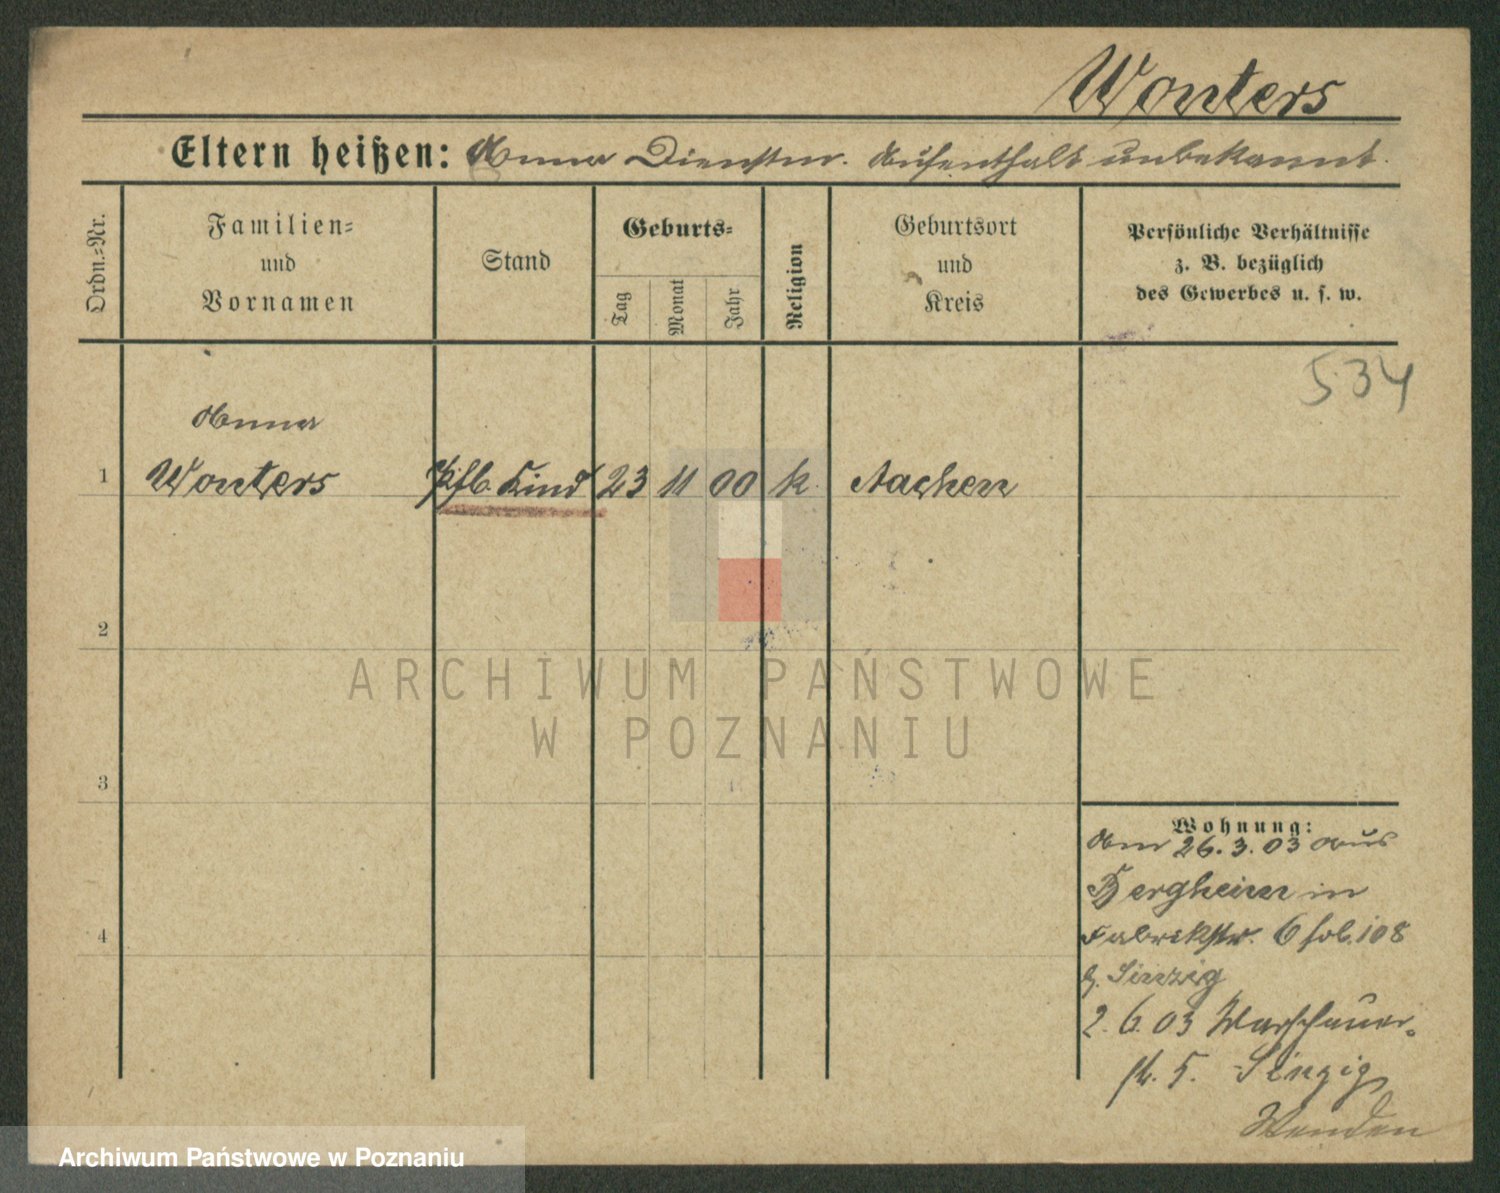 Wonters
Eltern heißen: Anna Dienstm. Aufenthalt unbekannt.
Ordn.-Nr.
Familien-
und
Vornamen
Stand
Geburts-
Tag
Monat
Jahr
Religion
Geburtsort
und
Kreis
Persönliche Verhältnisse
z. B. bezüglich
des Gewerbes u. s. w.
534
Anna
1 Wonters Pflb. Kind 23 11 00 k. Aachen
2
3
4
Wohnung:
Am 26.3.03 aus
Bergheim in
Fabrikstr. 6 fol. 108
b. Sinzig
2.6.03 Warschauer-
str. 5. Sinzig
Wenden
ARCHIWUM PAŃSTWOWE
W POZNANIU
Archiwum Państwowe w Poznaniu